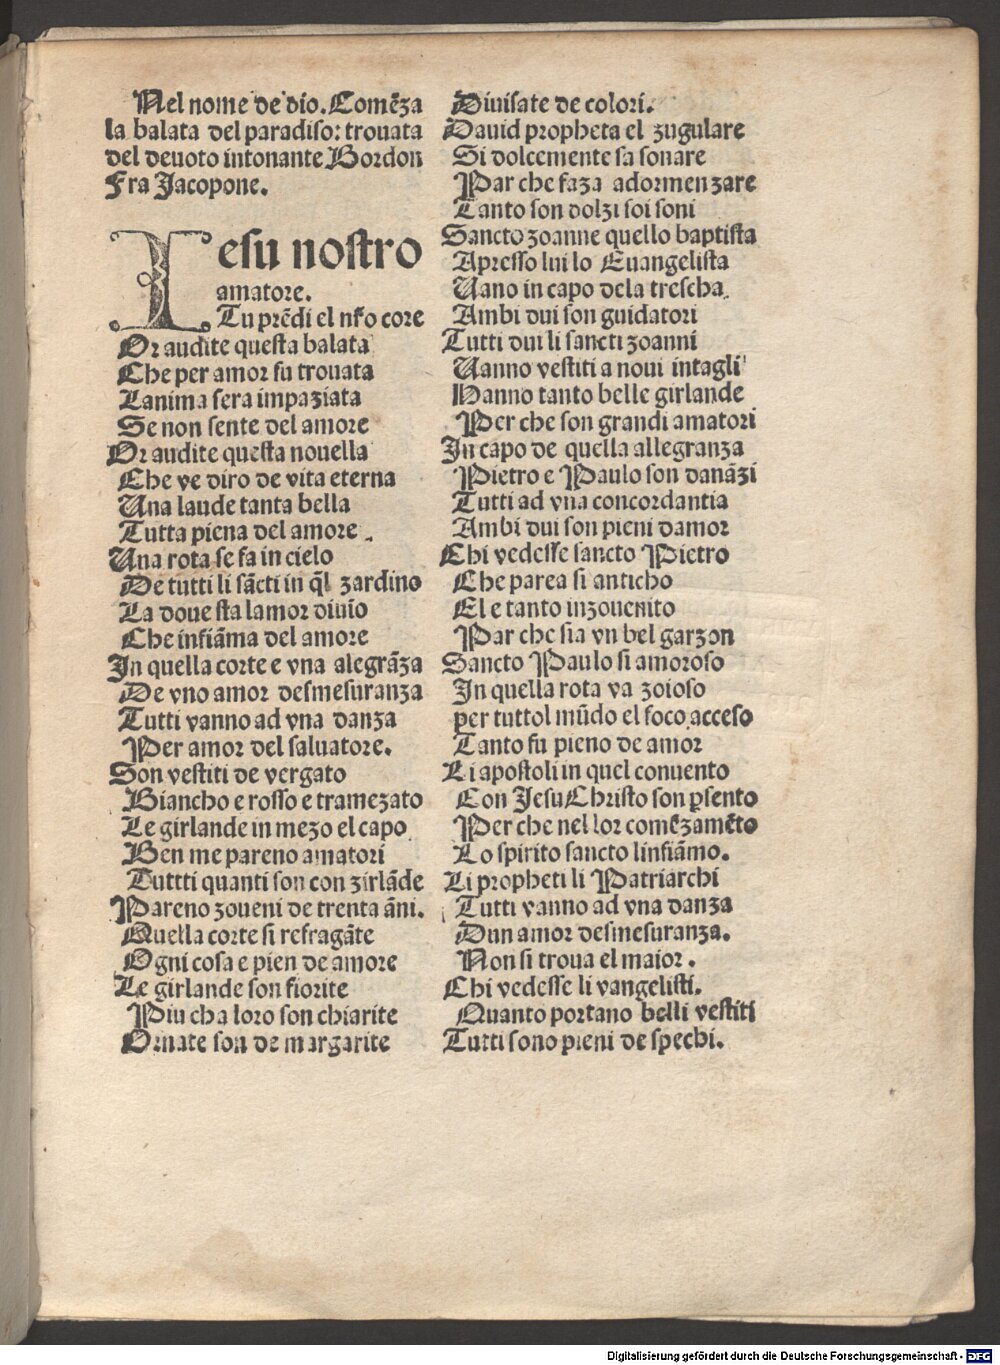 Nel nome de dio. Comẽza
la balata del paradiso: trouata
del deuoto intonante Bordon
Fra Jacopone.
Iesu nostro
amatore.
Tu prẽdi el nr̃o core
Or audite questa balata
Che per amor fu trouata
Lanima sera impaziata
Se non sente del amore
Or audite questa nouella
Che ve diro de vita eterna
Una laude tanta bella
Tutta piena del amore.
Una rota se fa in cielo
De tutti li sãcti in q̃l zardino
La doue sta lamor diuĩo
Che infiãma del amore
In quella corte e vna alegrãza
De vno amor desmesuranza
Tutti vanno ad vna danza
Per amor del saluatore.
Son vestiti de vergato
Biancho e rosso e tramezato
Le girlande in mezo el capo
Ben me pareno amatori
Tuttti quanti son con zirlãde
Pareno zoueni de trenta ãni.
Quella corte si refragãte
Ogni cosa e pien de amore
Le girlande son fiorite
Piu cha loro son chiarite
Ornate son de margarite
Diuisate de colori.
Dauid propheta el zugulare
Si dolcemente sa sonare
Par che faza adormenzare
Tanto son dolzi soi soni
Sancto zoanne quello baptista
Apresso lui lo Euangelista
Uano in capo dela trescha.
Ambi dui son guidatori
Tutti dui li sancti zoanni
Uanno vestiti a noui intagli
Hanno tanto belle girlande
Per che son grandi amatori
In capo de quella allegranza
Pietro e Paulo son danãzi
Tutti ad vna concordantia
Ambi dui son pieni damor
Chi vedesse sancto Pietro
Che parea si anticho
El e tanto inzouenito
Par che sia vn bel garzon
Sancto Paulo si amoroso
In quella rota va zoioso
per tuttol mũdo el foco acceso
Tanto fu pieno de amor
Li apostoli in quel conuento
Con Jesu Christo son p̱sento
Per che nel lor comẽzamẽto
Lo spirito sancto linfiãmo.
Li propheti li Patriarchi
Tutti vanno ad vna danza
Dun amor desmesuranza.
Non si troua el maior.
Chi vedesse li vangelisti.
Quanto portano belli vestiti
Tutti sono pieni de spechi.
Digitalisierung gefördert durch die Deutsche Forschungsgemeinschaft - DFG